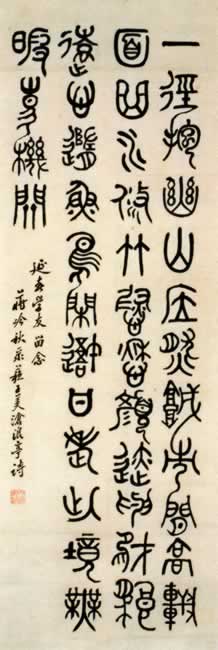 一徑抱幽山居然城市間高軒
面曲水修竹慰愁顏迹與豺狼
遠心隨魚鳥閑吾甘老此境無
暇事機關
延學友留念
蔣吟秋录蘇子美滄浪亭詩